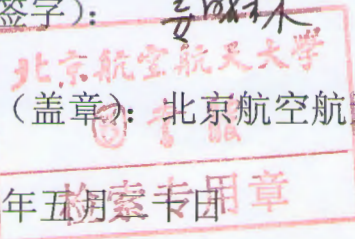 签字）：
北京航空航天大学
（盖章）：北京航空航
图书馆
年五月二十日
检索专用章